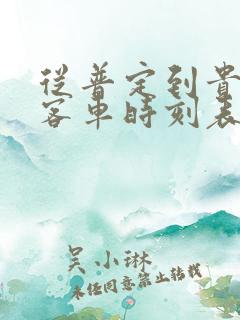 從普定到貴
客車時刻表
吴小琳
未经同意禁止转载